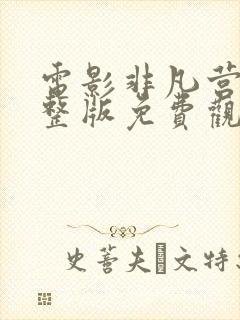 電影非凡营
整版免費觀
史蒂夫·文特